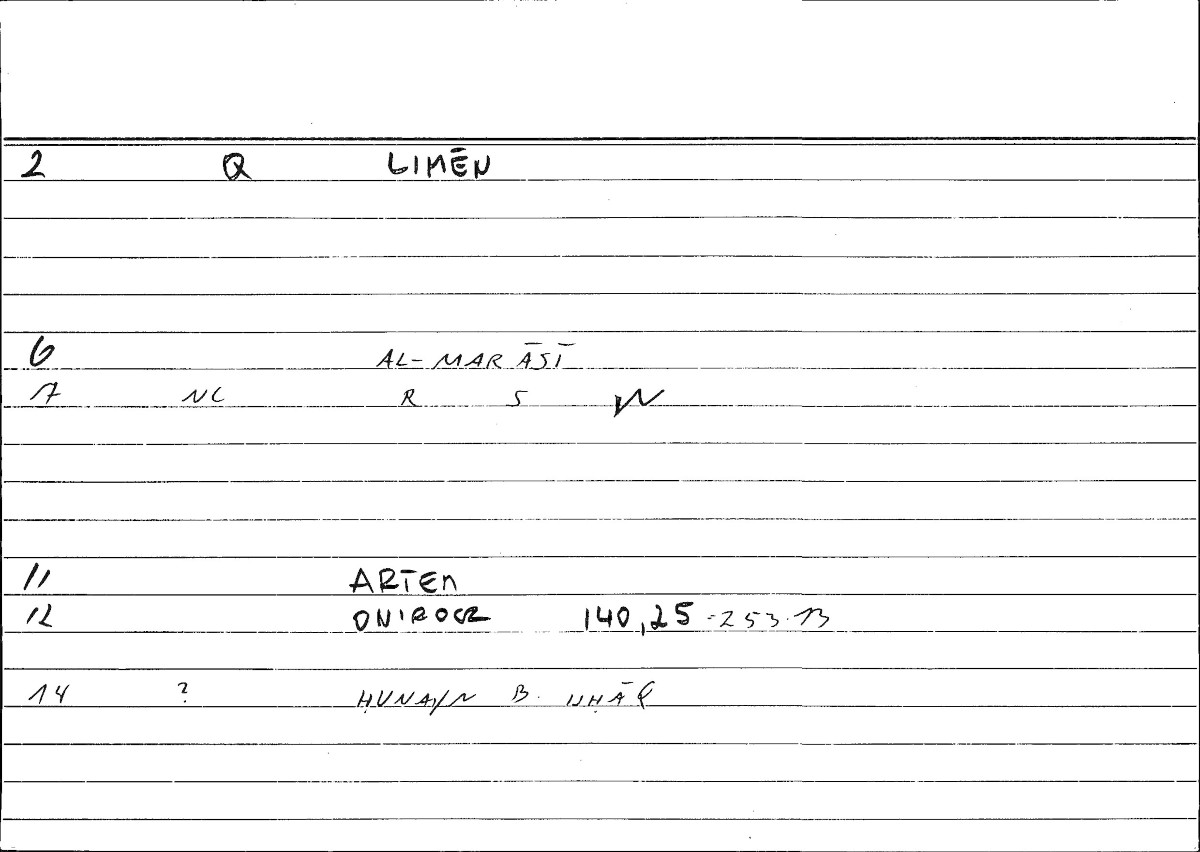 2 Q LIMĒN
6 AL-MARĀSĪ
7 NC R S W
11 ARTEM
12 ONIROCR 140,25-253.13
14 ? ḤUNAYN B. ISḤĀQ